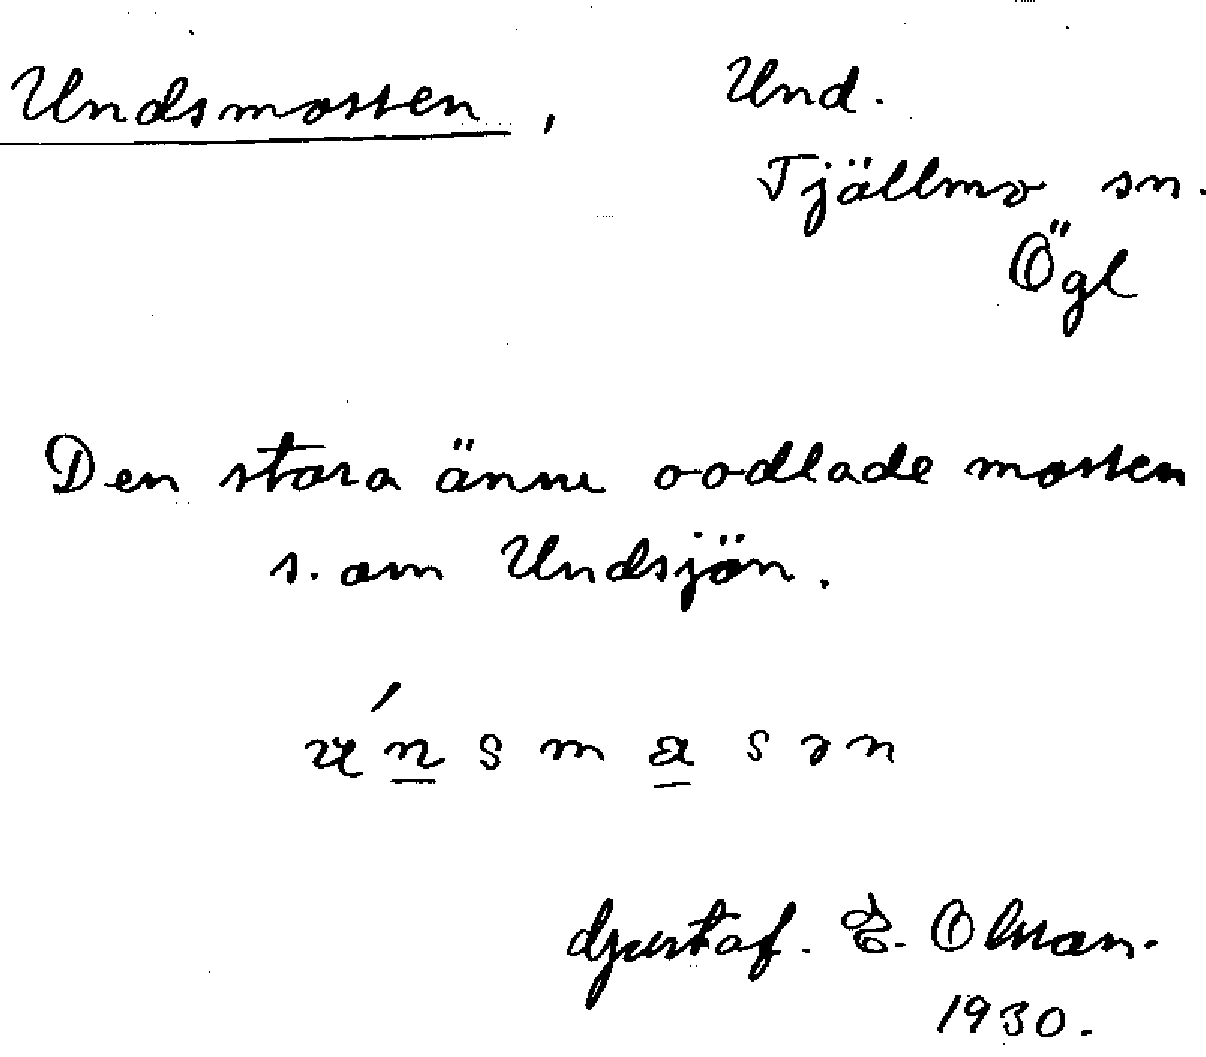 Undsmossen, Und.
Tjällmo sn.
Ögl
Den stora ännu oodlade mossen
s. om Undsjön.
Gustaf. E. Olsson.
1930.